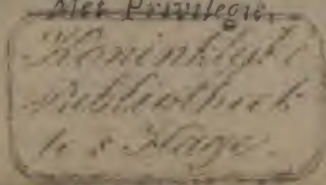 Met Privilegie.
Koninklyke
Bibliotheek
te s Hage.